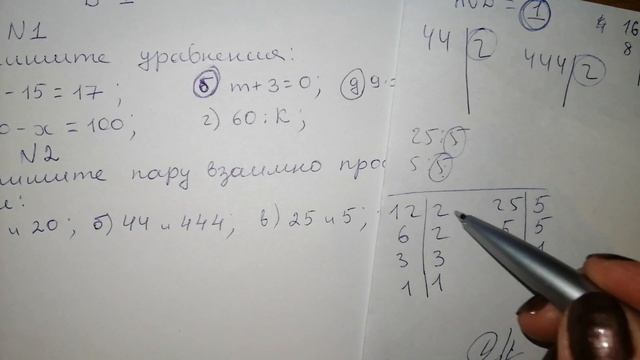 N1
уравнения:
- 15 = 17; б) m + 3 = 0; д) 9 ·
- x = 100; г) 60 : К;
N2
пару взаимно
и 20; б) 44 и 444; в) 25 и 5;
= 1
4 16
8
44 | 2
444 | 2
25 : 5
5 : 5
12 | 2 25 | 5
6 | 2 5 | 5
3 | 3 1
1 | 1